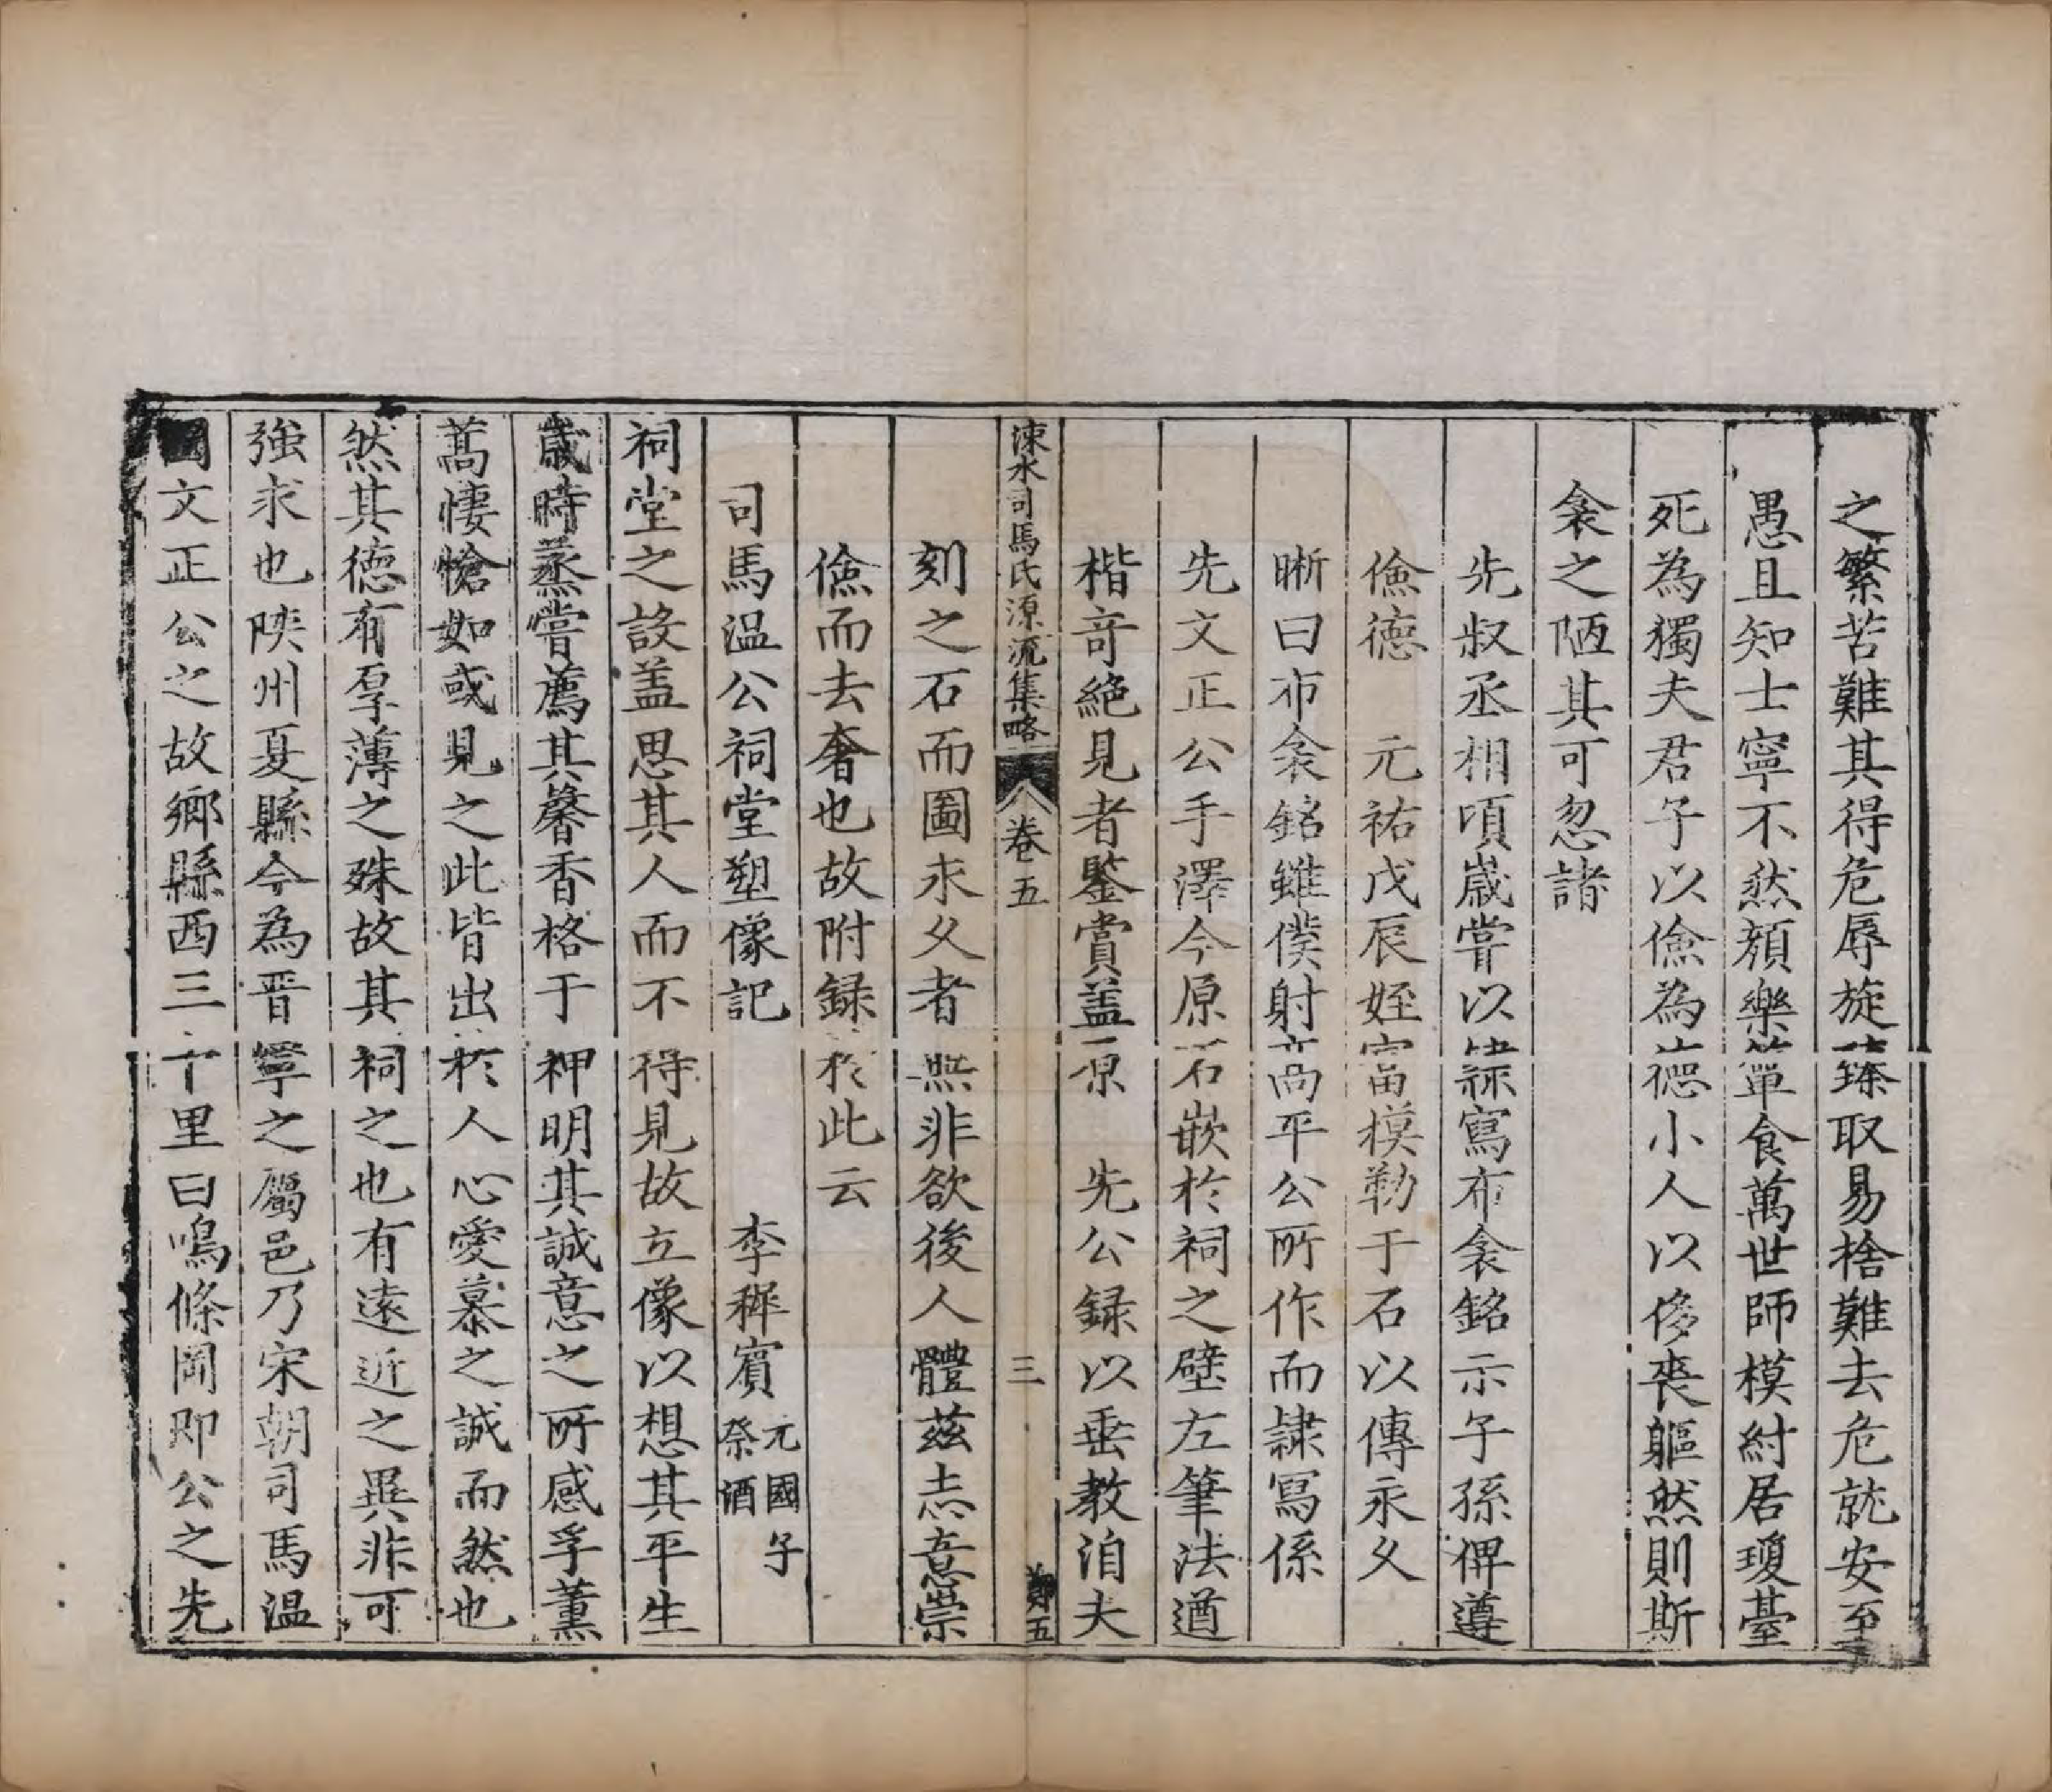 之繁苦難其得危辱旋臻取易捨難去危就安至
愚且知士寧不然顏樂簞食萬世師模紂居瓊臺
死為獨夫君子以儉為德小人以侈喪軀然則斯
衾之陋其可忽諸
先叔丞相頃嵗嘗以隷寫布衾銘示子孫俾遵
儉德　元祐戊辰姪富模勒于石以傳永久
晣曰布衾銘雖僕射高平公所作而隷寫係
先文正公手澤今原石嵌於祠之壁左筆法遒
楷竒絶見者鑒賞盖原　先公録以垂教洎夫
涑水司馬氏源流集略　卷五　三　五
刻之石而圖永久者無非欲後人體兹志意崇
儉而去奢也故附録於此云
司馬温公祠堂塑像記　李穉賓元國子祭酒
祠堂之設盖思其人而不得見故立像以想其平生
嵗時蒸嘗薦其馨香格于神明其誠意之所感孚薰
蒿悽愴如或見之此皆出於人心愛慕之誠而然也
然其德有厚薄之殊故其祠之也有遠近之異非可
強求也陜州夏縣今為晋寧之屬邑乃宋朝司馬温
國文正公之故鄉縣西三十里曰鳴條岡即公之先